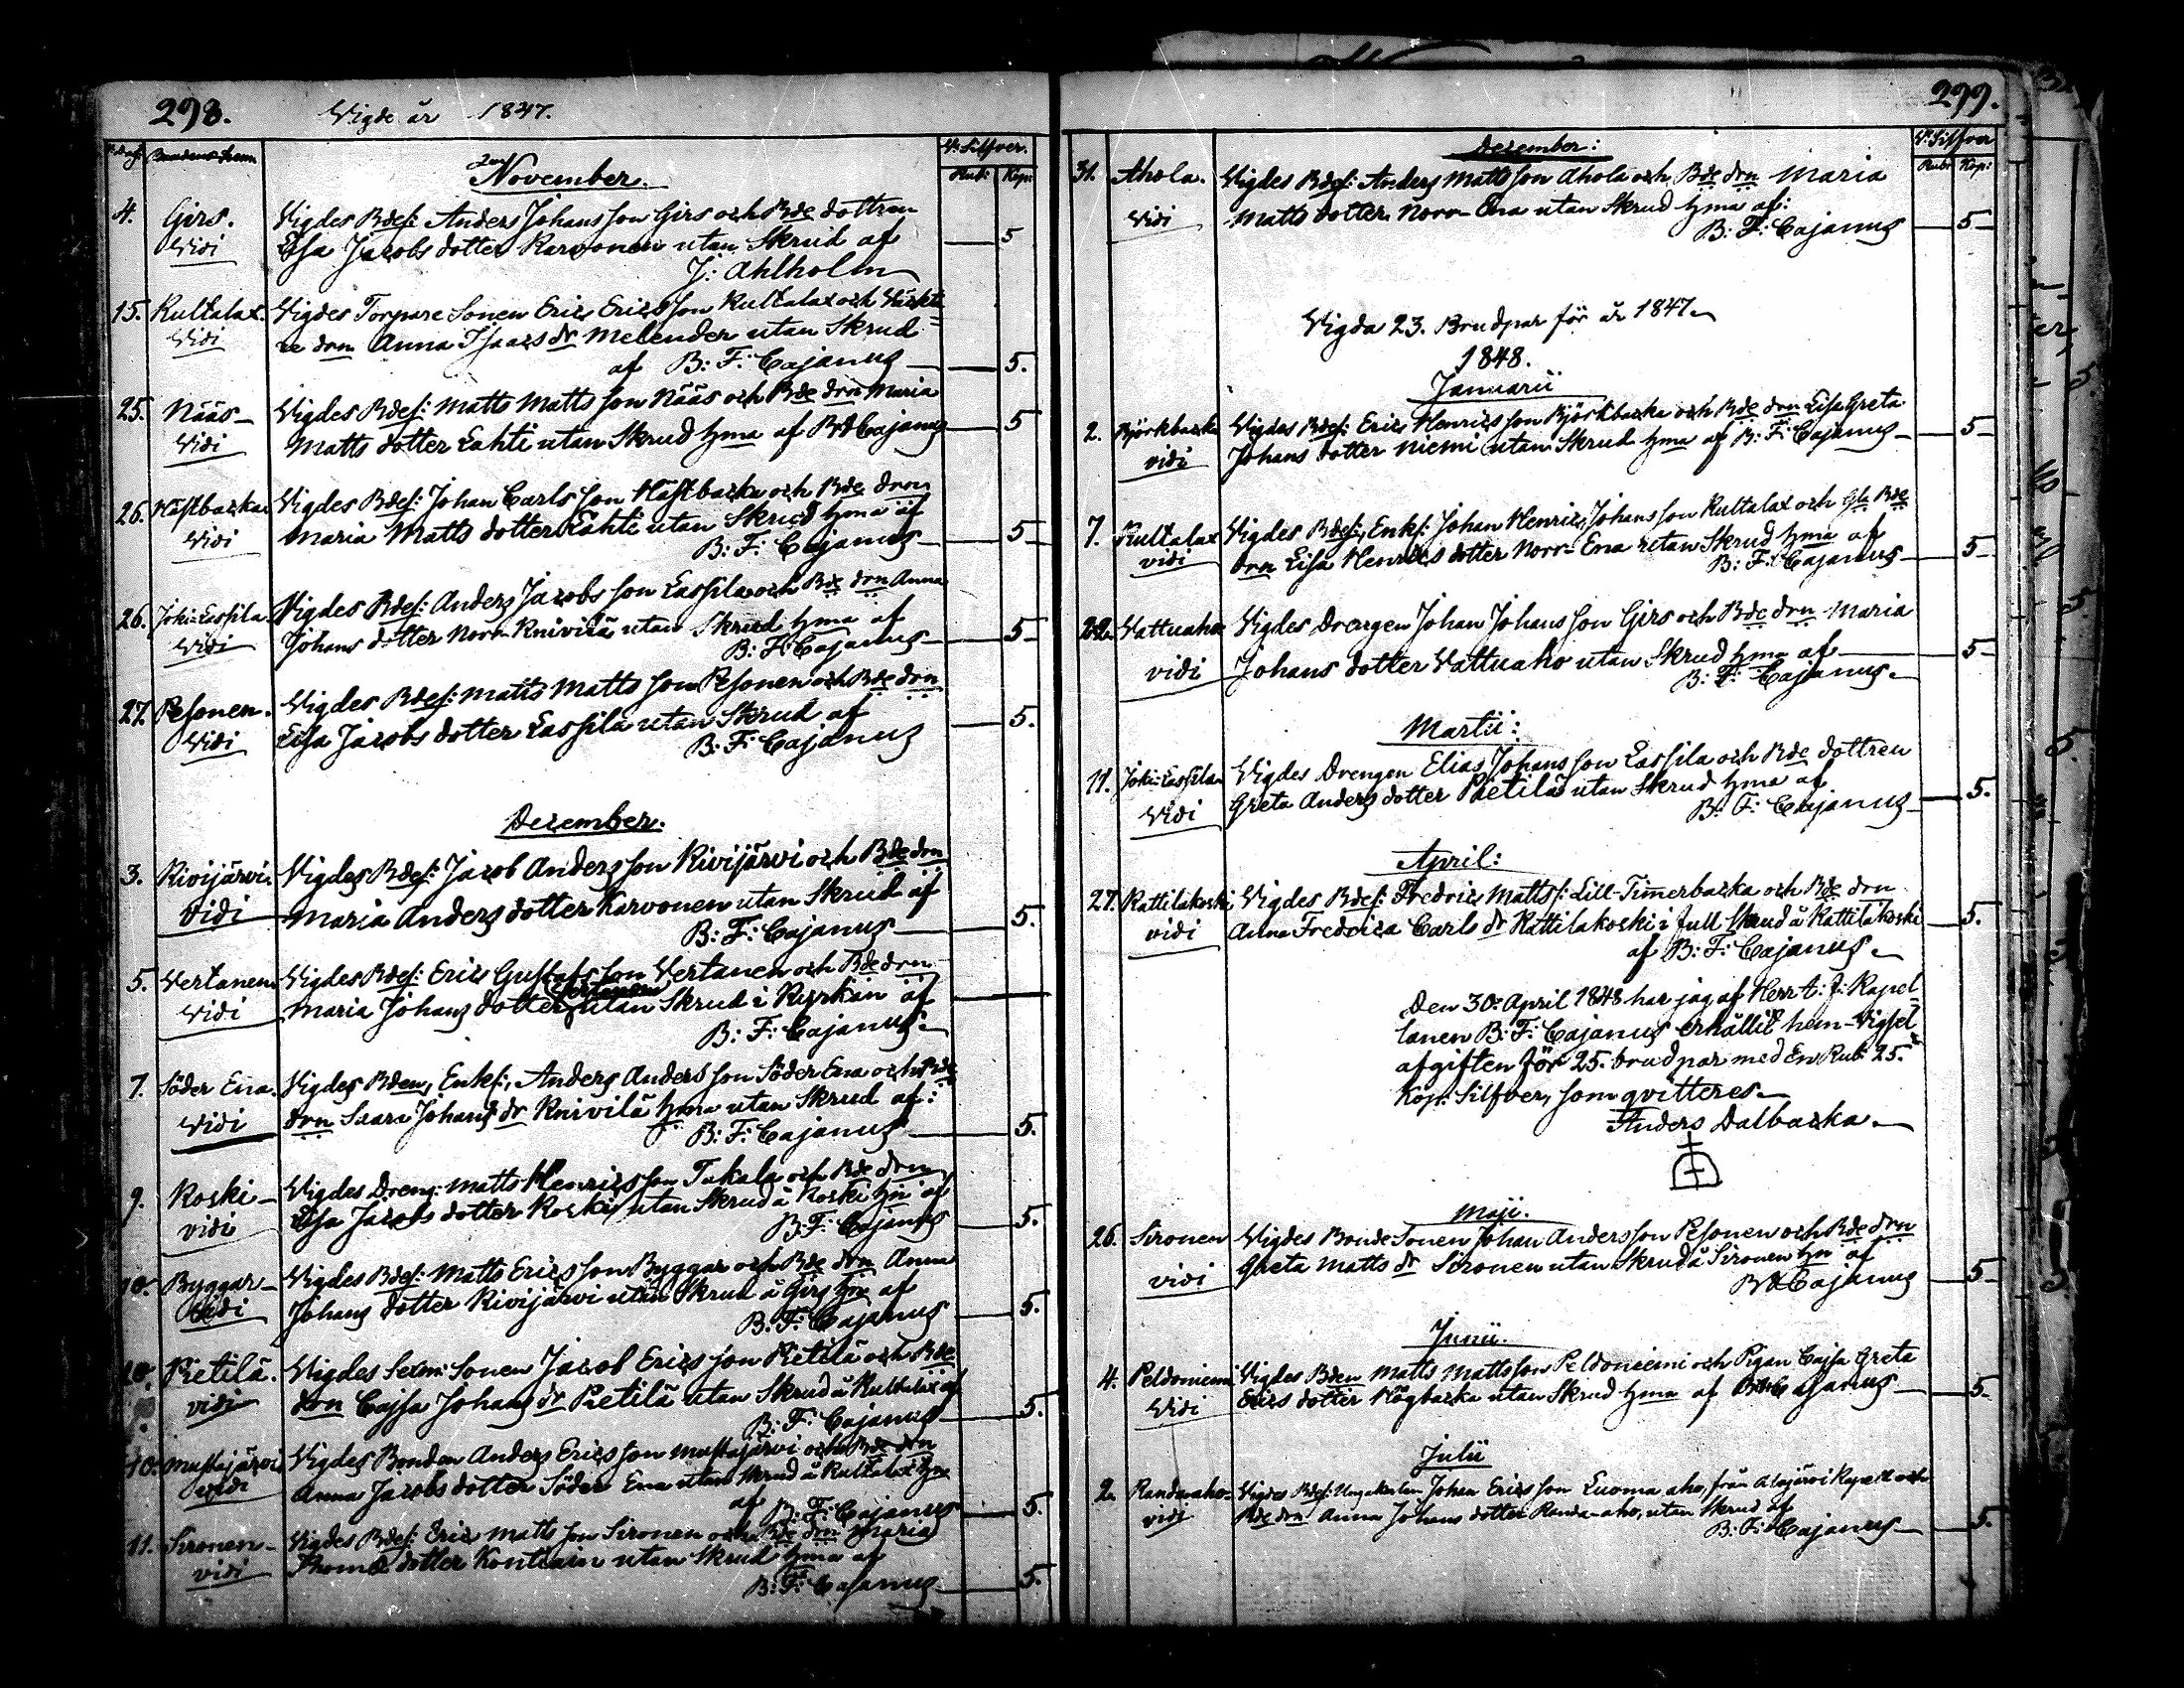 298.
Vigde år 1847.
W: Silfver.
Rub: Kop:
November.
4. Girs. Vigdes Bdes: Anders Johans son Girs och Bde dottren
Vidi Lisa Jacobs dotter Karvonen utan Skrud af 5
J: Ahlholm
15. Kultalax. Vigdes Torpare Sonen Eric Erics son Kultalax och
Vidi re drn Anna Isaacs dr Melender utan Skrud
af B: F: Cajanus 5.
25. Nääs Vigdes Bdes: Matts Matts son Nääs och Bde drn Maria
Vidi Matts dotter Lahti utan Skrud hma af BFCajanus 5
26. Hästbacka Vigdes Bdes: Johan Carls son Hästbacka och Bde drn
Vidi Maria Matts dotter Lahti utan Skrud hma af
B: F: Cajanus 5
26. Joki-Lassila Vigdes Bdes: Anders Jacobs son Lassila och Bde drn Anna
Vidi Johans dotter Norr-Knivilä utan Skrud hma af
B: F: Cajanus 5
27. Pesonen. Vigdes Bdes: Matts Matts son Pesonen och Bde drn
Vidi Lisa Jacobs dotter Lassila utan Skrud af 5.
B: F: Cajanus
December.
3. Kivijärvi. Vigdes Bdes: Jacob Anders son Kivijärvi och Bde drn
Vidi Maria Anders dotter Karvonen utan Skrud af
B: F: Cajanus 5.
5. Vertanen Vigdes Bdes: Eric Gustafs son Vertanen och Bde drn
Vidi Maria Johans dotter utan Skrud i Kyrkan af
B: F: Cajanus.
7. Söder Ena. Vigdes Bden, Enkl:, Anders Anders son Söder Ena och Bde
Vidi drn Saara Johans dr Knivilä hma utan Skrud af:
B: F: Cajanus 5.
9. Koski Vigdes Dreng: Matts Henrics son Takala och Bde drn
vidi Lisa Jacobs dotter Koski utan Skrud å Koski hn af
B: F: Cajanus 5.
10. Byggar Vigdes Bdes: Matts Erics son Byggar och Bde drn Anna
Vidi Johans dotter Kivijärvi utan Skrud å Girs hn af
B: F: Cajanus 5.
10. Pietilä. Vigdes Sexm: Sonen Jacob Erics son Pietilä och Bde
vidi drn Cajsa Johans dr Pietilä utan Skrud å Kultalax af
B: F: Cajanus 5.
10. Mustajärvi Vigdes Bonden Anders Erics son Mustajärvi och Bde drn
vidi Anna Jacobs dotter Söder Ena utan Skrud å Kultalax hn
af B: F: Cajanus 5.
11. Sironen Vigdes Bdes: Eric Matts son Sironen och Bde drn Maria
vidi Thomæ dotter Kontiain utan Skrud hma af
B: F: Cajanus 5.
299.
W: Silfver
Rub: Kop:
December:
31. Ahola. Vigdes Bdes: Anders Matts son Ahola och Bde drn Maria
Vidi Matts dotter Norr-Ena utan Skrud hma af:
B: F: Cajanus 5
Vigda 23. Brudpar för år 1847.
1848.
Januarii
2. Björkbacka Vigdes Bdes: Eric Henrics son Björkbacka och Bde drn Lisa Greta
vidi Johans dotter Niemi utan Skrud hma af B: F: Cajanus 5
7. Kultalax Vigdes Bdes:, Enkl: Johan Henrics Johans son Kultalax och Gla Bde
vidi drn Lisa Henrics dotter Norr-Ena utan Skrud hma af
B: F: Cajanus 5
22. Vattuaho Vigdes Drengen Johan Johans son Girs och Bde drn Maria
vidi Johans dotter Vattuaho utan Skrud hma af 5
B: F: Cajanus.
Martii:
11. Joki-Lassila Vigdes Drengen Elias Johans son Lassila och Bde dottren
Vidi Greta Anders dotter Pietilä utan Skrud hma af
B: F: Cajanus 5.
April:
27. Kattilakoski Vigdes Bdes: Fredric Matts s: Lill-Timerbacka och Bde drn
vidi Anna Fredrica Carls dr Kattilakoski i full Skrud å Kattilakoski 5.
af B: F: Cajanus.
Den 30: April 1848 har jag af Herr t: f: Kapel
lanen B: F: Cajanus erhållit hem-Vigsel
afgiften för 25. brudpar med En Rub: 25.
Kop: Silfver, som qvitteres.
Anders Dalbacka.
Maji.
26. Sironen Vigdes Bonde Sonen Johan Anders son Pesonen och Bde drn
vidi Greta Matts dr Sironen utan Skrud å Sironen hn af
BFCajanus 5
Junii.
4. Peldoniemi Vigdes Bden Matts Matts son Peldoniemi och Pigan Cajsa Greta
Vidi Erics dotter Högbacka utan Skrud hma af BFCajanus 5
Julii
2. Randa-aho Vigdes Bdes: Ungakarlen Johan Erics son Luoma aho, från Alajärvi Kapell och
vidi Bde drn Anna Johans dotter Randa-aho, utan Skrud af
B: F: Cajanus 5.